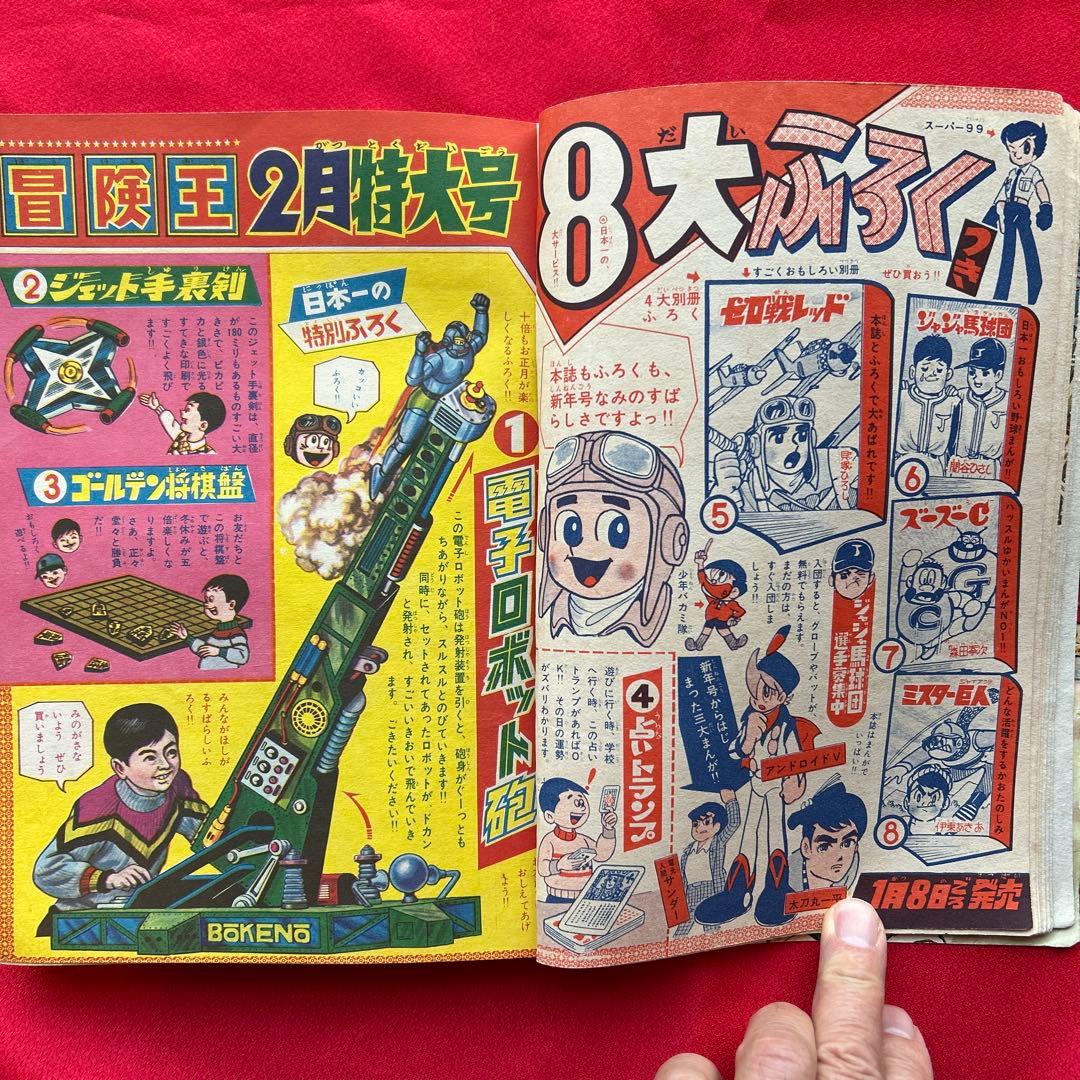 冒険王 2月特大号
② ジェット手裏剣
このジェット手裏剣は、直径
が180ミリもあるものすごい大
きさで、ピカピ
カと銀色に光る
すてきな印刷で
すごくよく飛び
ます!!
③ ゴールデン将棋盤
お友だちと
この将棋盤
で遊ぶと、
冬休みが五
倍楽しくな
りますよ
さあ、正々
堂々と勝負
だ!!
おもしろく
遊べるよ!!
日本一の
特別ふろく
カッコいい
ふろく!!
十倍もお正月が楽
しくなるふろく!!
① 電子ロボット砲
この電子ロボット砲は発射装置を引くと、砲身がぐーっとも
ちあがりながら、スルスルとのびていきます!!
同時に、セットされてあったロボットが、ドカン
と発射され、すごいいきおいで飛んでいき
ます。ごきたいください!!
みんながほしが
るすばらしいふ
ろく!!
みのがさな
いよう ぜひ
買いましょう
おしえてあげ
よう!!
BōKENō
8大ふろくつき
日本一の、
大サービス!!
スーパー99
↓すごくおもしろい別冊
ぜひ買おう!!
4大別冊
ふろく
本誌もふろくも、
新年号なみのすば
らしさですよっ!!
ゼロ戦レッド
本誌とふろくで大あばれです!!
貝塚ひろし
⑤
ジャジャ馬球団
日本一おもしろい野球まんが!!
関谷ひさし
⑥
ズーズーC
ハッスルゆかいまんがNO1!!
森田拳次
⑦
ミスター巨人
どんな活躍をするかおたのしみ
伊東あきお
⑧
少年パカミ隊
入団すると、グローブやバットが
無料でもらえます。
まだの方は、
すぐ入団しま
しょう!!
ジャジャ馬球団
選手募集中
本誌はまんがで
いっぱい!!
新年号からはじ
まった三大まんが!!
アンドロイドV
④ 占いトランプ
遊びに行く時、学校
へ行く時、この占い
トランプがあればO
K!! その日の運勢
がズバリわかります。
電光人間 サンダー
太刀丸一平
1月8日ごろ発売